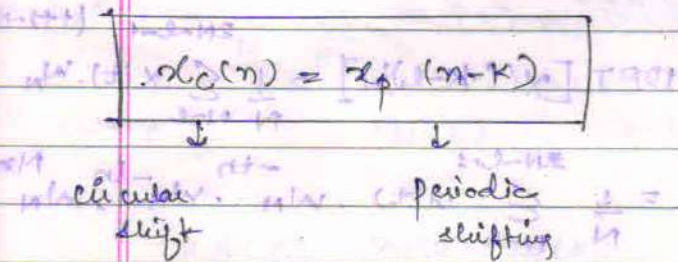 x_c(n) = x_p (n-k)
↓ ↓
circular shift
periodic shifting